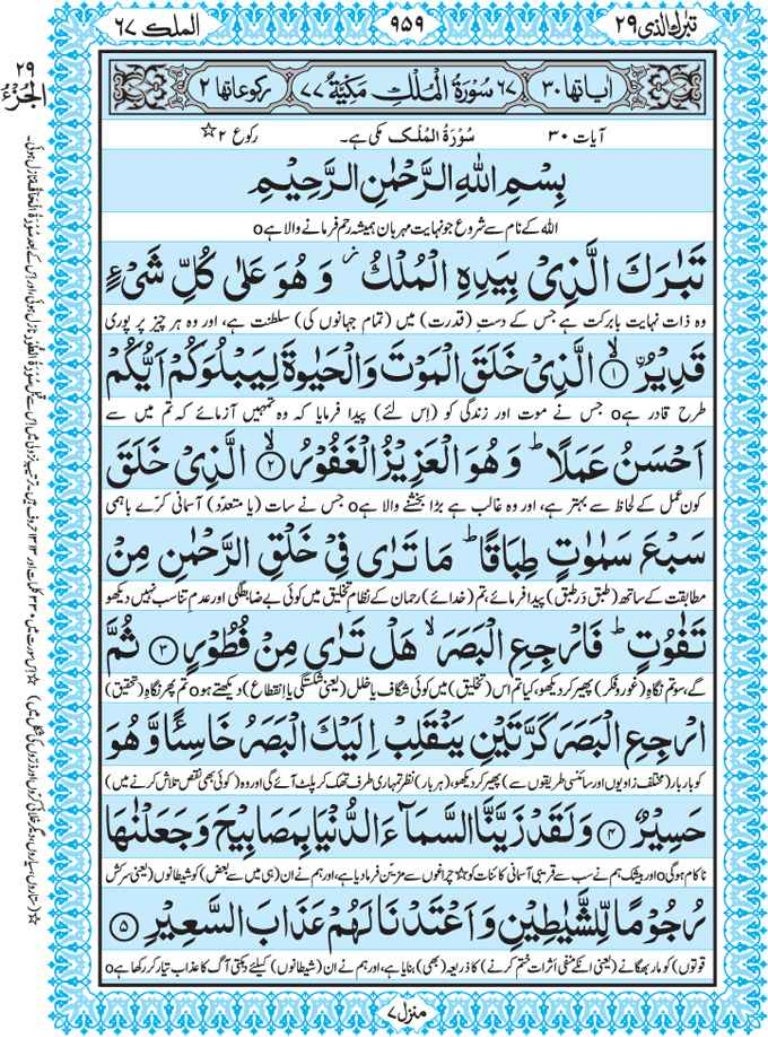 تبٰرك الذی ۲۹
۹۵۹
الملك ۶۷
اٰیاتها ۳۰
۶۷ سُوْرَةُ الْمُلْكِ مَكِّیَّةٌ ۷۷
رکوعاتها ۲
آیات ۳۰
سُوْرَةُ الْمُلْک مکی ہے۔
رکوع ۲ ☆
بِسْمِ اللّٰهِ الرَّحْمٰنِ الرَّحِیْمِ
اللہ کے نام سے شروع جو نہایت مہربان ہمیشہ رحم فرمانے والا ہے o
تَبٰرَكَ الَّذِیْ بِیَدِهِ الْمُلْكُ ؗ وَ هُوَ عَلٰى كُلِّ شَیْءٍ
وہ ذات نہایت بابرکت ہے جس کے دستِ (قدرت) میں (تمام جہانوں کی) سلطنت ہے، اور وہ ہر چیز پر پوری
قَدِیْرُ ۙ ﴿۱﴾ الَّذِیْ خَلَقَ الْمَوْتَ وَالْحَیٰوةَ لِیَبْلُوَكُمْ اَیُّكُمْ
طرح قادر ہے o جس نے موت اور زندگی کو (اِس لئے) پیدا فرمایا کہ وہ تمہیں آزمائے کہ تم میں سے
اَحْسَنُ عَمَلًا ؕ وَ هُوَ الْعَزِیْزُ الْغَفُوْرُ ۙ ﴿۲﴾ الَّذِیْ خَلَقَ
کون عمل کے لحاظ سے بہتر ہے، اور وہ غالب ہے بڑا بخشنے والا ہے o جس نے سات (یا متعدّد) آسمانی کرّے باہمی
سَبْعَ سَمٰوٰتٍ طِبَاقًا ؕ مَا تَرٰى فِیْ خَلْقِ الرَّحْمٰنِ مِنْ
مطابقت کے ساتھ (طبق دَر طبق) پیدا فرمائے، تم (خدائے) رحمان کے نظامِ تخلیق میں کوئی بے ضابطگی اور عدمِ تناسب نہیں دیکھو
تَفٰوُتٍ ؕ فَارْجِعِ الْبَصَرَ ۙ هَلْ تَرٰى مِنْ فُطُوْرٍ ﴿۳﴾ ثُمَّ
گے، سو تم نگاہِ (غور و فکر) پھیر کر دیکھو، کیا تم اس (تخلیق) میں کوئی شگاف یا خلل (یعنی شکستگی یا اِنقطاع) دیکھتے ہو o تم پھر نگاہِ (تحقیق)
ارْجِعِ الْبَصَرَ كَرَّتَیْنِ یَنْقَلِبْ اِلَیْكَ الْبَصَرُ خَاسِئًا وَّ هُوَ
کو بار بار (مختلف زاویوں اور سائنسی طریقوں سے) پھیر کر دیکھو، (ہر بار) نظر تمہاری طرف تھک کر پلٹ آئے گی اور وہ (کوئی بھی نقص تلاش کرنے میں)
حَسِیْرٌ ﴿۴﴾ وَ لَقَدْ زَیَّنَّا السَّمَآءَ الدُّنْیَا بِمَصَابِیْحَ وَ جَعَلْنٰهَا
ناکام ہوگی o اور بیشک ہم نے سب سے قریبی آسمانی کائنات کو ☆ چراغوں سے مزیّن فرما دیا ہے، اور ہم نے ان (ہی میں سے بعض) کو شیطانوں (یعنی سرکش
رُجُوْمًا لِّلشَّیٰطِیْنِ وَ اَعْتَدْنَا لَهُمْ عَذَابَ السَّعِیْرِ ﴿۵﴾
قوتوں) کو مار بھگانے (یعنی انکے منفی اَثرات ختم کرنے) کا ذریعہ (بھی) بنایا ہے، اور ہم نے ان (شیطانوں) کیلئے دہکتی آگ کا عذاب تیار کر رکھا ہے o
منزل ۷
۲۹
الجُزْءُ